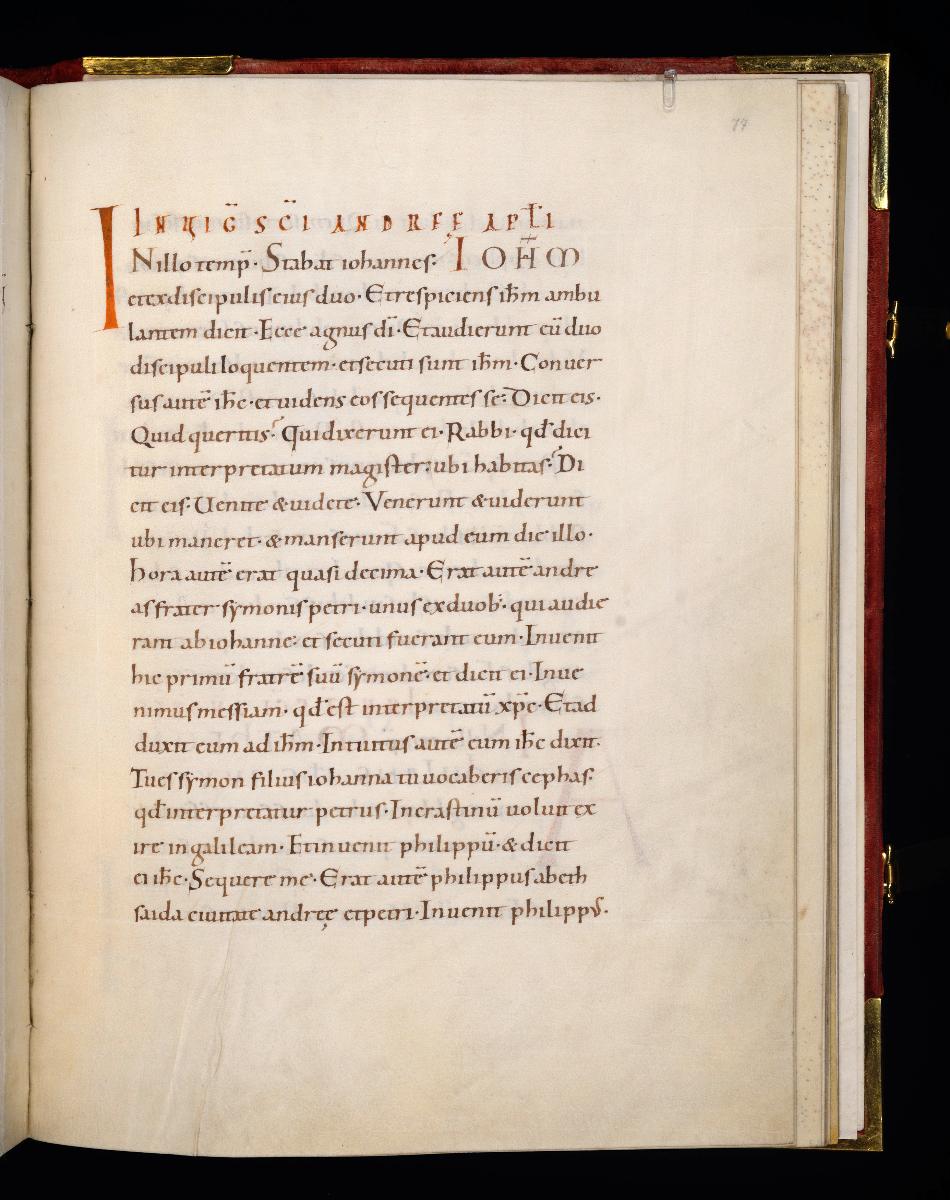 74
IN UIḠ SC̄I ANDREĘ APƚI
INillo temp̄· Stabat iohannes· IOH̄M
et ex discipulis eius duo· Et respiciens ih̄m ambu
lantem dicit· Ecce agnus dī· Et audierunt eū duo
discipuli loquentem· et secuti sunt ih̄m· Conuer
sus autē ih̄c· et uidens eos sequentes se· Dicit eis·
Quid queritis· Qui dixerunt ei· Rabbi· qd̄ dici
tur interpretatum magister· ubi habitas· Di
cit eis· Uenite & uidete· Venerunt & uiderunt
ubi maneret· & manserunt apud eum die illo·
hora autē erat quasi decima· Erat autē andre
as frater symonis petri· unus ex duob;· qui audie
rant ab iohanne· et secuti fuerant eum· Inuenit
hic primū fratrē suū symonē· et dicit ei· Inue
nimus messiam· qd̄ est interpretatū xp̄c· Et ad
duxit eum ad ih̄m· Intuitus autē eum ih̄c dixit·
Tu es symon filius iohanna tu uocaberis cephas·
qd̄ interpretatur petrus· In crastinū uoluit ex
ire in galileam· Et inuenit philippū· & dicit
ei ih̄c· Sequere me· Erat autē philippus a beth
saida ciuitate andreę et petri· Inuenit philippus·